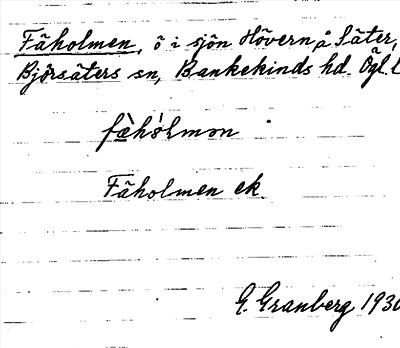 Fäholmen, ö i sjön Hövern å Säter,
Björsäters sn, Bankekinds hd. Ögl. l
Fäholmen ek.
G. Granberg 1930